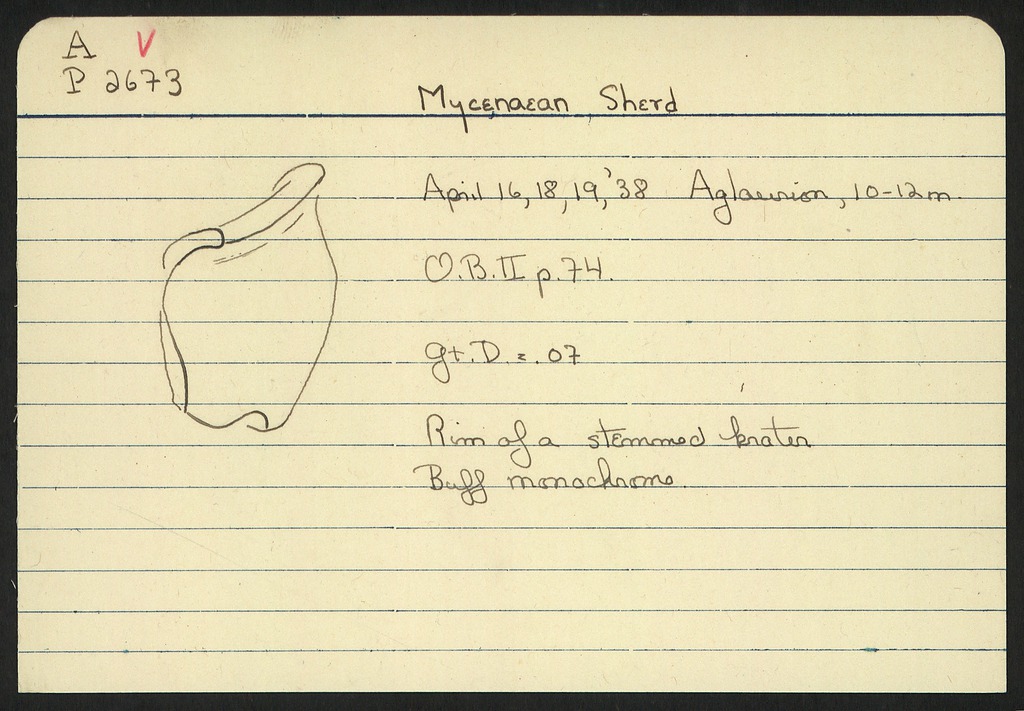 A V
P 2673
Mycenaean Sherd
April 16, 18, 19, '38 Aglaurion, 10-12 m.
O.B. II p. 74.
gt. D. = .07
Rim of a stemmed krater
Buff monochrome.